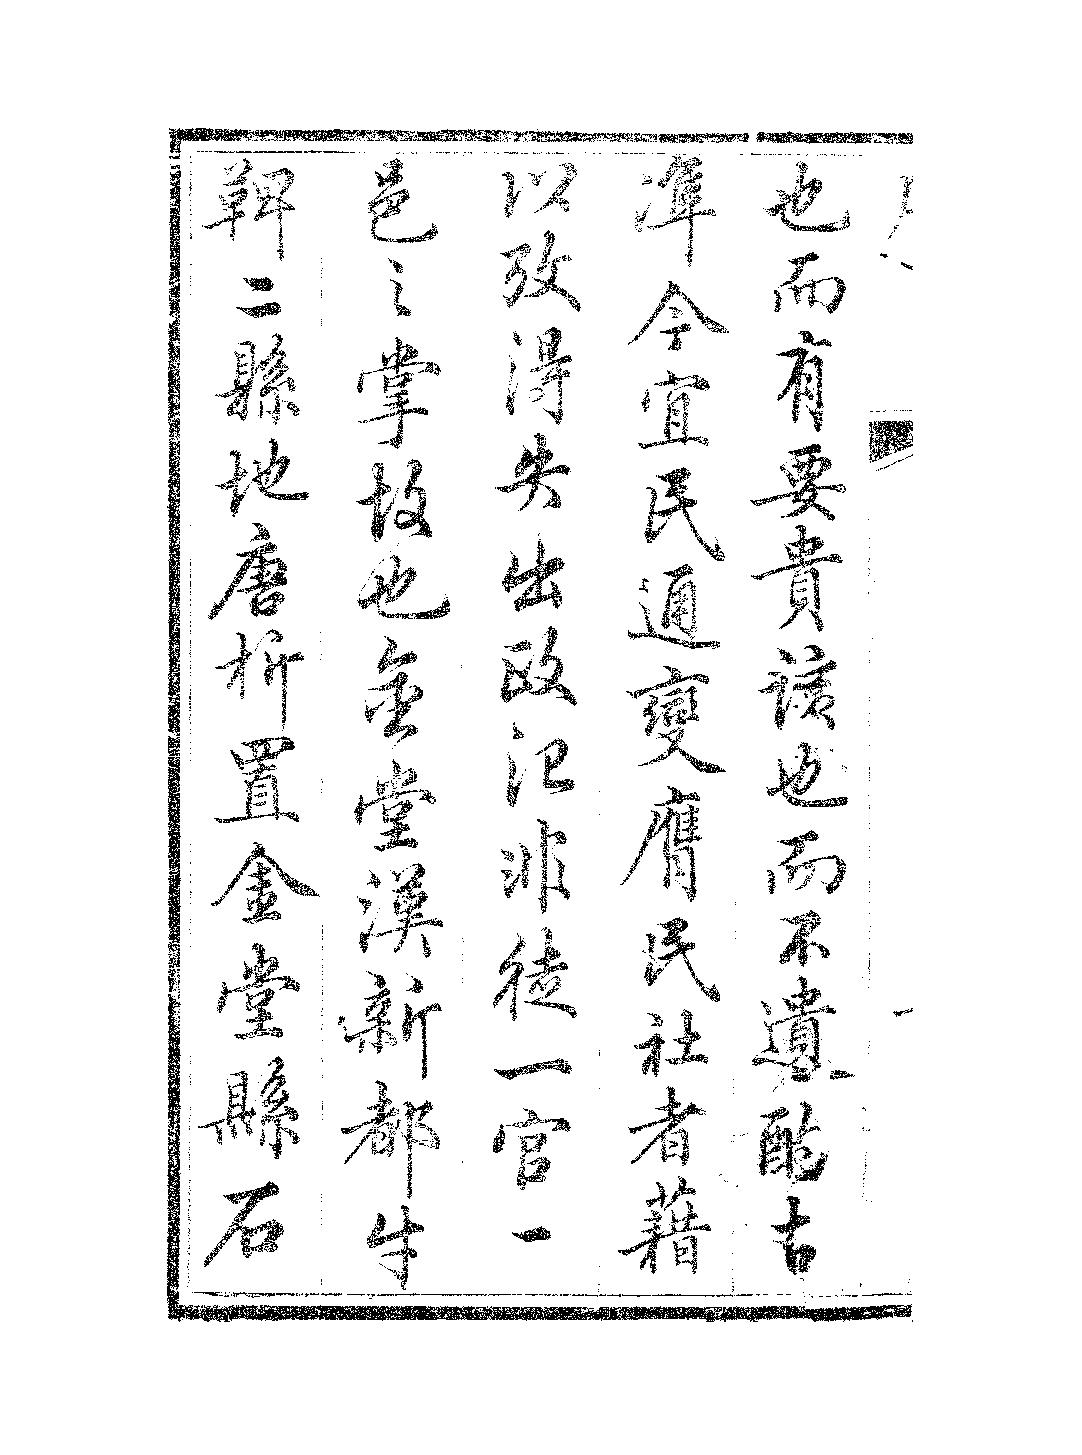 也而有要貴該也而不遺酌古
準今宜民通變膺民社者藉
以攷得失出政記非徒一官一
邑之掌故也金堂漢新都牛
鞞二縣地唐析置金堂縣石